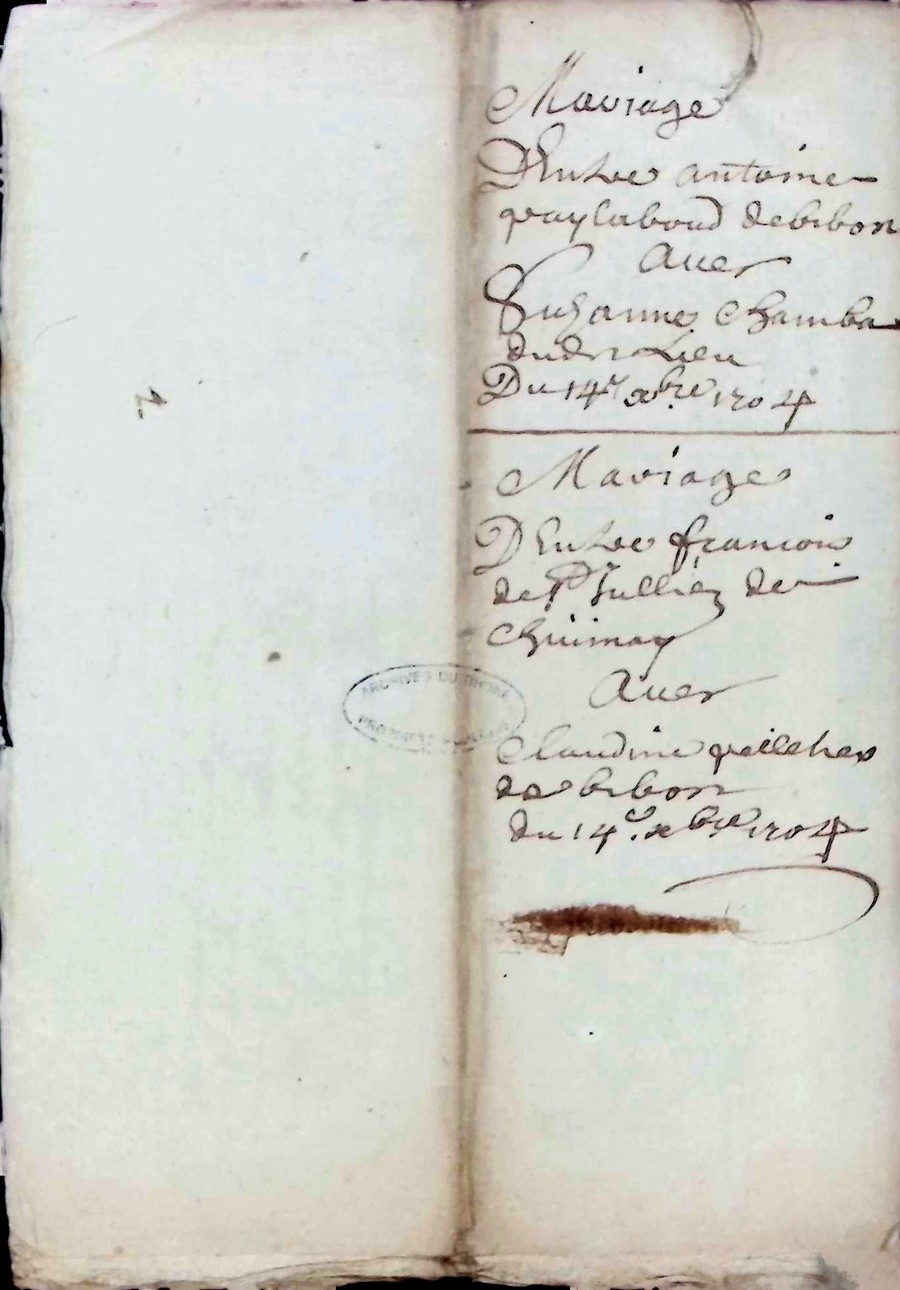 Mariage
D'Entre antoine
guaylaboud de bibon
Avec
Suzanne Chamba
dud. Lieu
Du 14e xbre 1704
Mariage
D'Entre francois
de St Jullien de
Chuimay
Avec
Claudine
de bibon
du 14e xbre 1704
ARCHIVES DU RHONE